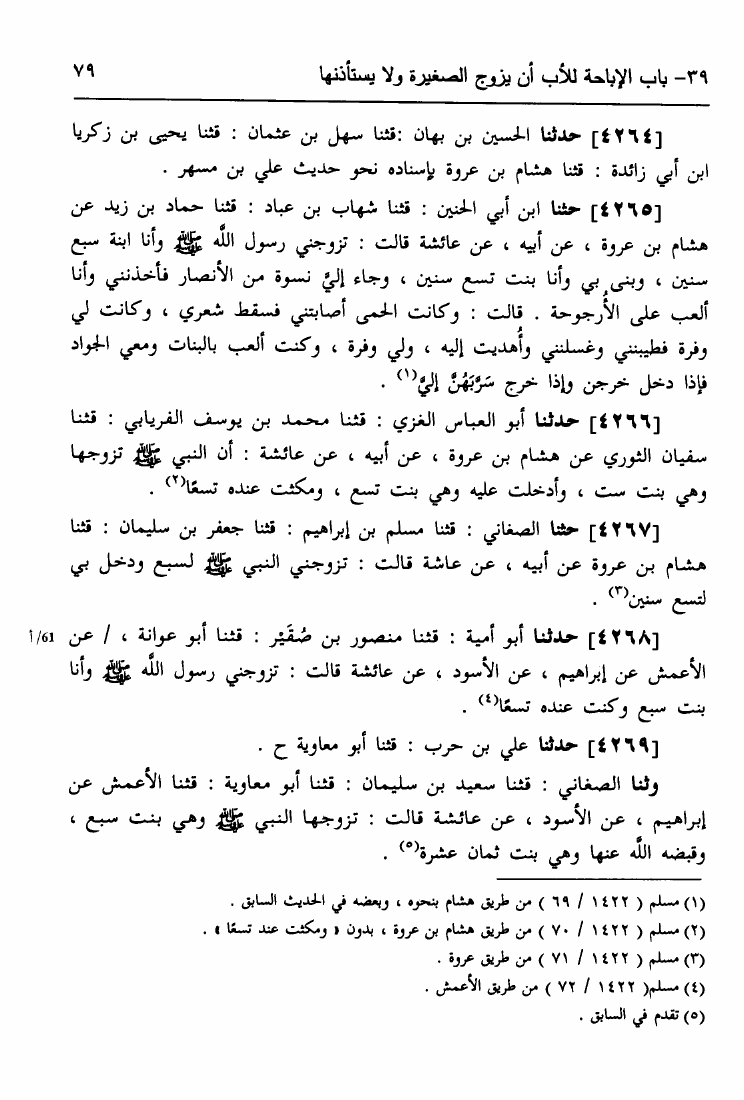 ٣٩- باب الإباحة للأب أن يزوج الصغيرة ولا يستأذنها ٧٩
[٤٢٦٤] حدثنا الحسين بن بهان :قثنا سهل بن عثمان : قثنا يحيى بن زكريا
ابن أبي زائدة : قثنا هشام بن عروة بإسناده نحو حديث علي بن مسهر .
[٤٢٦٥] حثنا ابن أبي الحنين : قثنا شهاب بن عباد : قثنا حماد بن زيد عن
هشام بن عروة ، عن أبيه ، عن عائشة قالت : تزوجني رسول اللَّه ﷺ وأنا ابنة سبع
سنين ، وبنى بي وأنا بنت تسع سنين ، وجاء إليَّ نسوة من الأنصار فأخذنني وأنا
ألعب على الأُرجوحة . قالت : وكانت الحمى أصابتني فسقط شعري ، وكانت لي
وفرة فطيبنني وغسلنني وأُهديت إليه ، ولي وفرة ، وكنت ألعب بالبنات ومعي الجواد
فإذا دخل خرجن وإذا خرج سَرَّبَهُنَّ إليَّ(١) .
[٤٢٦٦] حدثنا أبو العباس الغزي : قثنا محمد بن يوسف الفريابي : قثنا
سفيان الثوري عن هشام بن عروة ، عن أبيه ، عن عائشة : أن النبي ﷺ تزوجها
وهي بنت ست ، وأدخلت عليه وهي بنت تسع ، ومكثت عنده تسعًا(٢) .
[٤٢٦٧] حثنا الصغاني : قثنا مسلم بن إبراهيم : قثنا جعفر بن سليمان : قثنا
هشام بن عروة عن أبيه ، عن عاشة قالت : تزوجني النبي ﷺ لسبع ودخل بي
لتسع سنين(٣) .
[٤٢٦٨] حدثنا أبو أمية : قثنا منصور بن صُقَيْر : قثنا أبو عوانة ، / عن 61/أ
الأعمش عن إبراهيم ، عن الأسود ، عن عائشة قالت : تزوجني رسول اللَّه ﷺ وأنا
بنت سبع وكنت عنده تسعًا(٤) .
[٤٢٦٩] حدثنا علي بن حرب : قثنا أبو معاوية ح .
وثنا الصغاني : قثنا سعيد بن سليمان : قثنا أبو معاوية : قثنا الأعمش عن
إبراهيم ، عن الأسود ، عن عائشة قالت : تزوجها النبي ﷺ وهي بنت سبع ،
وقبضه اللَّه عنها وهي بنت ثمان عشرة(٥) .
(١) مسلم ( ١٤٢٢ / ٦٩ ) من طريق هشام بنحوه ، وبعضه في الحديث السابق .
(٢) مسلم ( ١٤٢٢ / ٧٠ ) من طريق هشام بن عروة ، بدون « ومكثت عند تسعًا » .
(٣) مسلم ( ١٤٢٢ / ٧١ ) من طريق عروة .
(٤) مسلم( ١٤٢٢ / ٧٢ ) من طريق الأعمش .
(٥) تقدم في السابق .